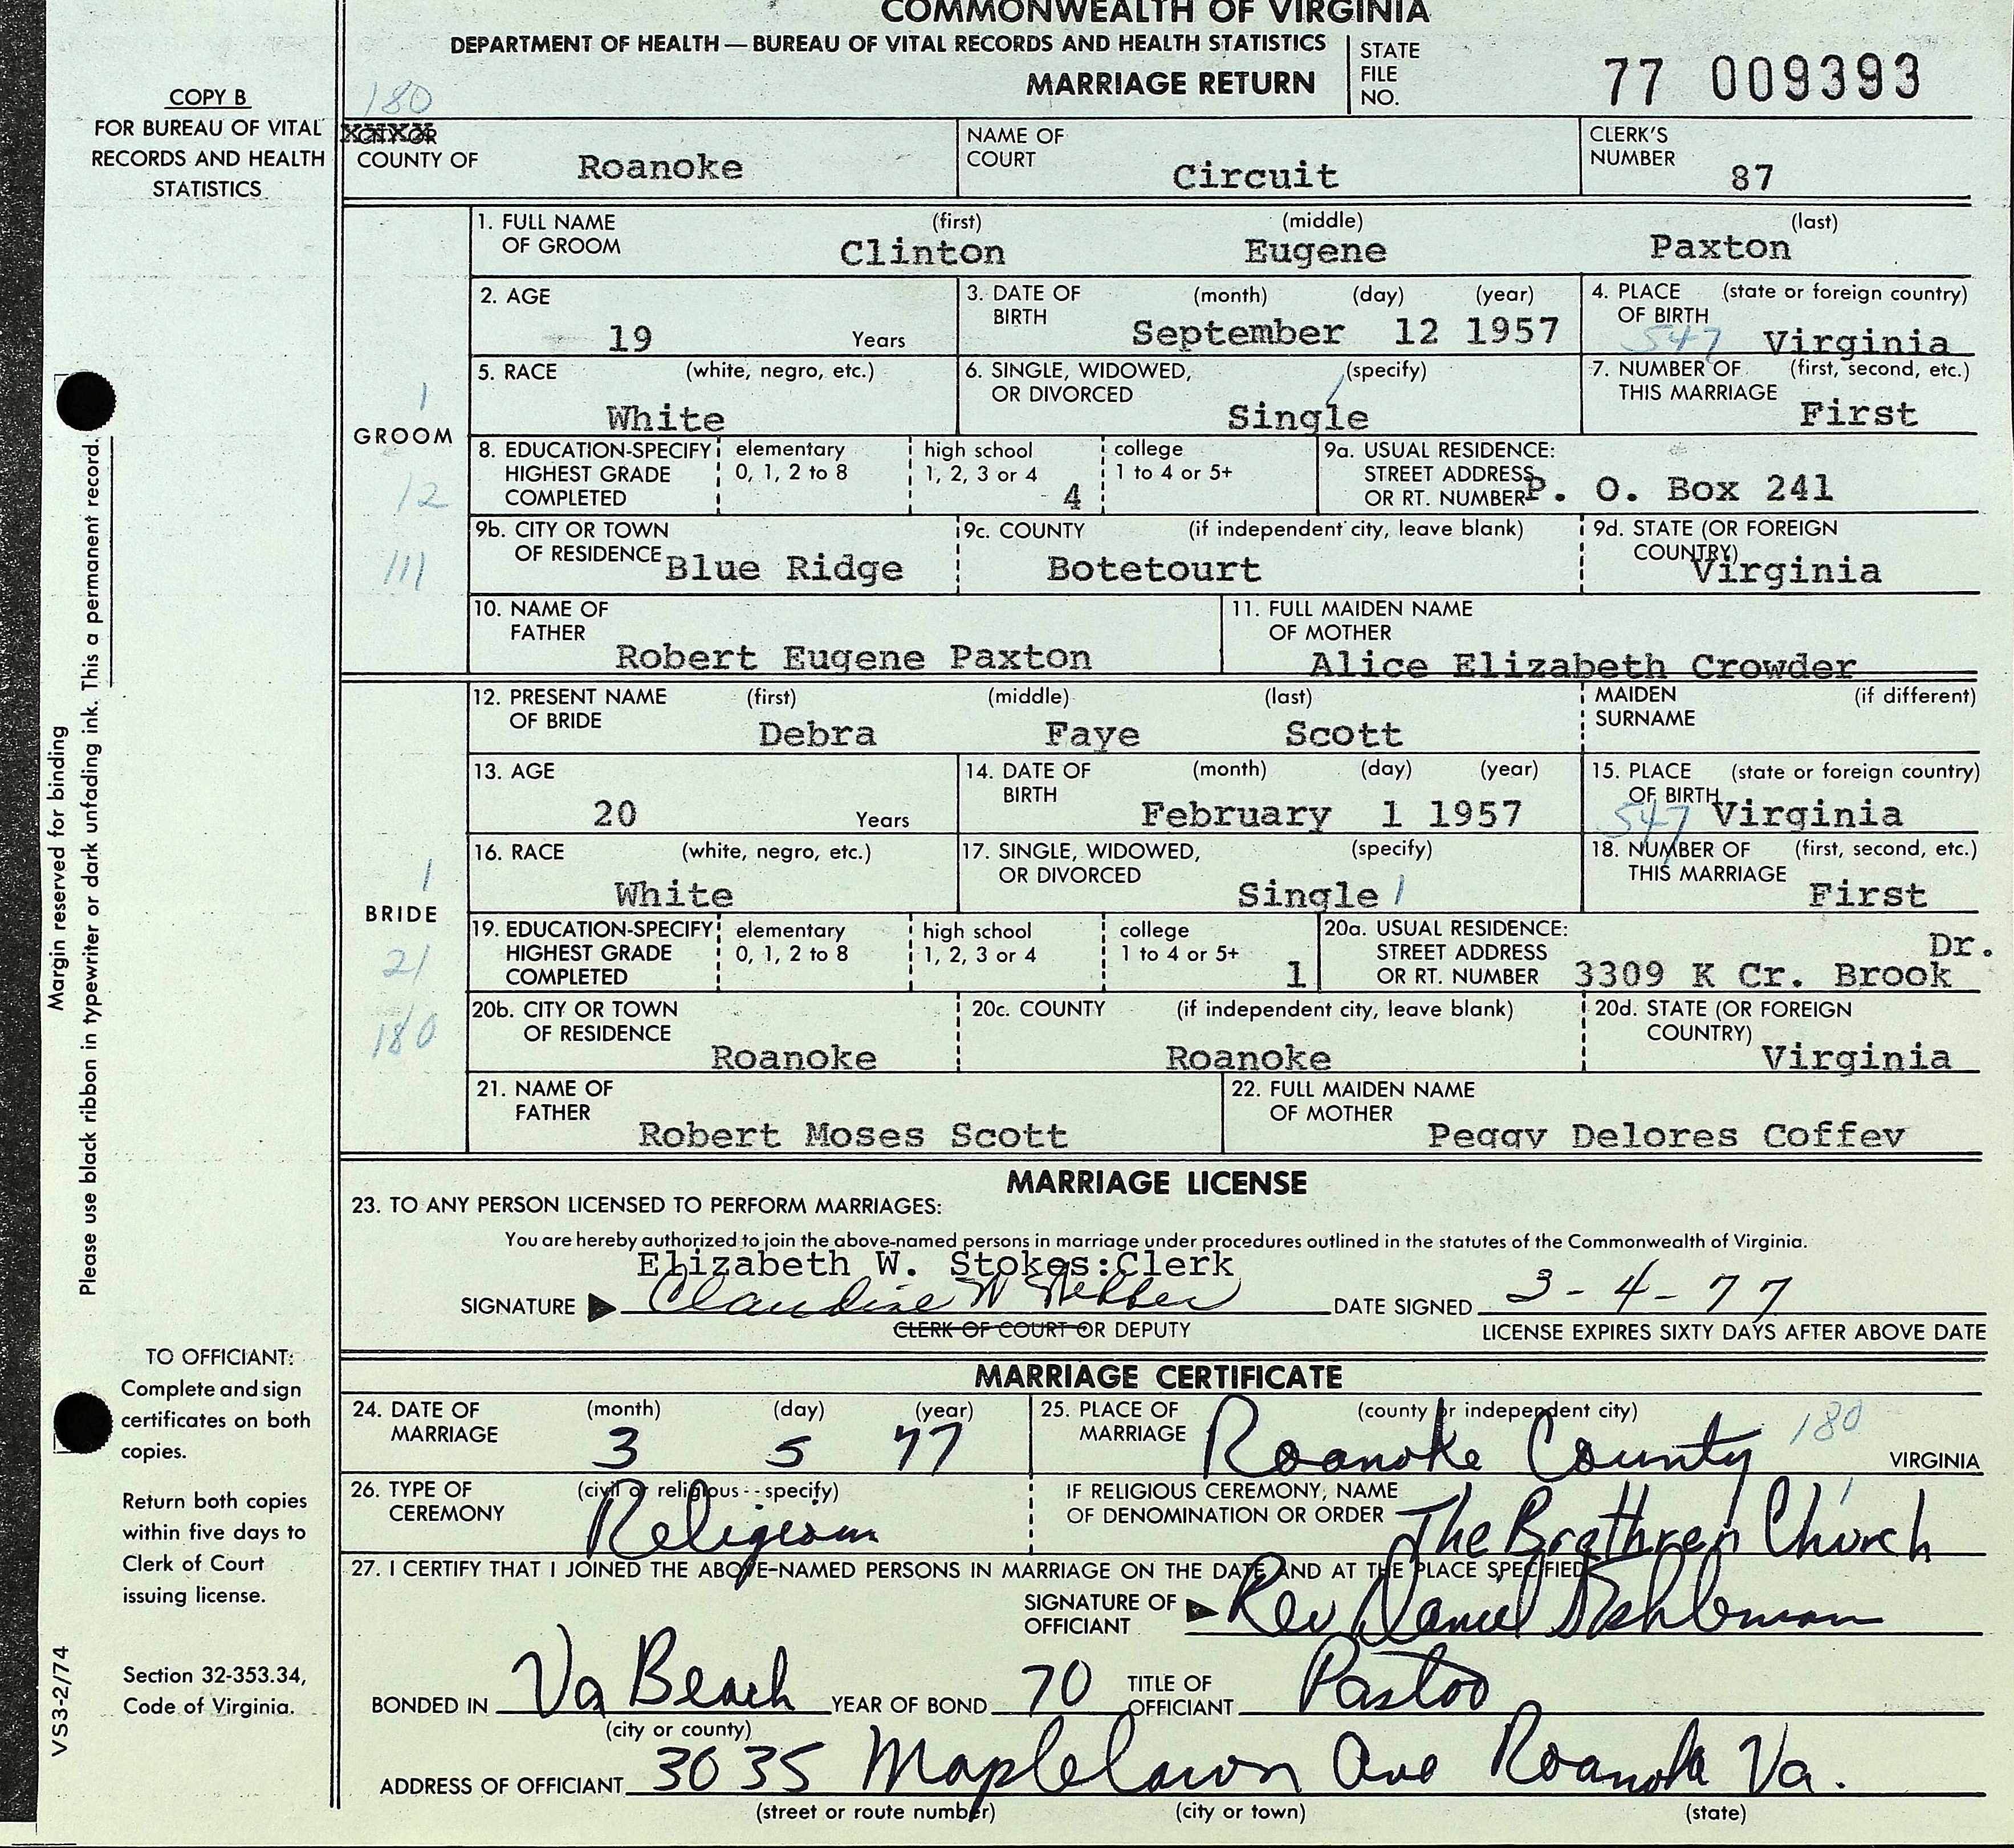 COMMONWEALTH OF VIRGINIA
DEPARTMENT OF HEALTH — BUREAU OF VITAL RECORDS AND HEALTH STATISTICS
MARRIAGE RETURN
STATE FILE NO. 77 009393
COPY B
FOR BUREAU OF VITAL
RECORDS AND HEALTH
STATISTICS
180
CITY OR
COUNTY OF Roanoke
NAME OF COURT Circuit
CLERK'S NUMBER 87
GROOM
1
12
111
1. FULL NAME OF GROOM (first) Clinton (middle) Eugene (last) Paxton
2. AGE 19 Years
3. DATE OF BIRTH (month) (day) (year) September 12 1957
4. PLACE OF BIRTH (state or foreign country) 547 Virginia
5. RACE (white, negro, etc.) White
6. SINGLE, WIDOWED, OR DIVORCED (specify) Single
7. NUMBER OF THIS MARRIAGE (first, second, etc.) First
8. EDUCATION-SPECIFY HIGHEST GRADE COMPLETED
elementary 0, 1, 2 to 8
high school 1, 2, 3 or 4 4
college 1 to 4 or 5+
9a. USUAL RESIDENCE: STREET ADDRESS OR RT. NUMBER P. O. Box 241
9b. CITY OR TOWN OF RESIDENCE Blue Ridge
9c. COUNTY (if independent city, leave blank) Botetourt
9d. STATE (OR FOREIGN COUNTRY) Virginia
10. NAME OF FATHER Robert Eugene Paxton
11. FULL MAIDEN NAME OF MOTHER Alice Elizabeth Crowder
BRIDE
1
21
180
12. PRESENT NAME OF BRIDE (first) Debra (middle) Faye (last) Scott
MAIDEN SURNAME (if different)
13. AGE 20 Years
14. DATE OF BIRTH (month) (day) (year) February 1 1957
15. PLACE OF BIRTH (state or foreign country) 547 Virginia
16. RACE (white, negro, etc.) White
17. SINGLE, WIDOWED, OR DIVORCED (specify) Single 1
18. NUMBER OF THIS MARRIAGE (first, second, etc.) First
19. EDUCATION-SPECIFY HIGHEST GRADE COMPLETED
elementary 0, 1, 2 to 8
high school 1, 2, 3 or 4
college 1 to 4 or 5+ 1
20a. USUAL RESIDENCE: STREET ADDRESS OR RT. NUMBER 3309 K Cr. Brook Dr.
20b. CITY OR TOWN OF RESIDENCE Roanoke
20c. COUNTY (if independent city, leave blank) Roanoke
20d. STATE (OR FOREIGN COUNTRY) Virginia
21. NAME OF FATHER Robert Moses Scott
22. FULL MAIDEN NAME OF MOTHER Peggy Delores Coffey
MARRIAGE LICENSE
23. TO ANY PERSON LICENSED TO PERFORM MARRIAGES:
You are hereby authorized to join the above-named persons in marriage under procedures outlined in the statutes of the Commonwealth of Virginia.
Elizabeth W. Stokes:Clerk
SIGNATURE Claudine W Webber DATE SIGNED 3-4-77
CLERK OF COURT OR DEPUTY
LICENSE EXPIRES SIXTY DAYS AFTER ABOVE DATE
MARRIAGE CERTIFICATE
24. DATE OF MARRIAGE (month) (day) (year) 3 5 77
25. PLACE OF MARRIAGE (county or independent city) Roanoke County 180 VIRGINIA
26. TYPE OF CEREMONY (civil or religious--specify) Religious
IF RELIGIOUS CEREMONY, NAME OF DENOMINATION OR ORDER The Brethren Church
27. I CERTIFY THAT I JOINED THE ABOVE-NAMED PERSONS IN MARRIAGE ON THE DATE AND AT THE PLACE SPECIFIED
SIGNATURE OF OFFICIANT Rev Daniel
BONDED IN Va Beach (city or county) YEAR OF BOND 70 TITLE OF OFFICIANT Pastor
ADDRESS OF OFFICIANT 3035 Maplelawn Ave Roanoke Va.
(street or route number) (city or town) (state)
Margin reserved for binding
Please use black ribbon in typewriter or dark unfading ink. This a permanent record.
TO OFFICIANT:
Complete and sign
certificates on both
copies.
Return both copies
within five days to
Clerk of Court
issuing license.
Section 32-353.34,
Code of Virginia.
VS3-2/74